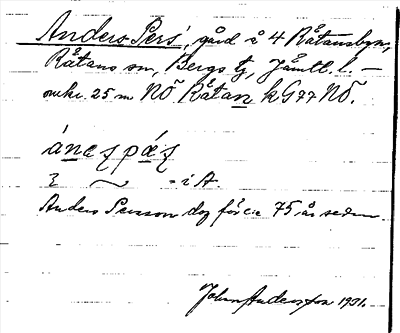 Anders-Pers', gård å 4 Råtansbyn,
Råtans sn, Bergs tg, Jämtl. l. –
omkr. 25 m NÖ Råtan kG77 NÖ.
ánaʃ pǽʃ
ξ ~ - i A.
Anders Persson dog för c:a 75 år sedan.
John Andersson 1931.